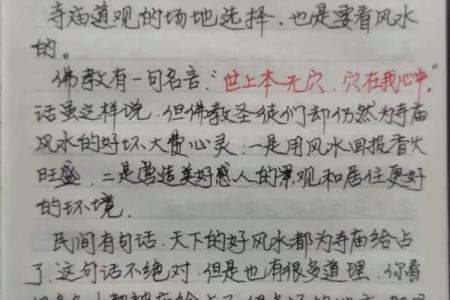 寺庙道观的场地选择，也是要看风水
的。
佛教有一句名言，“世上本无穴，穴在我心中。”
话虽这样说，但佛教圣徒们却仍然为寺庙
风水的好坏大费心灵：一是用风水回报香火
旺盛，二是营造美好感人的景观和居住更好
的环境。
民间有句话，天下的好风水都为寺庙给占
了，这句话不绝对，但是也有很多道理，你看